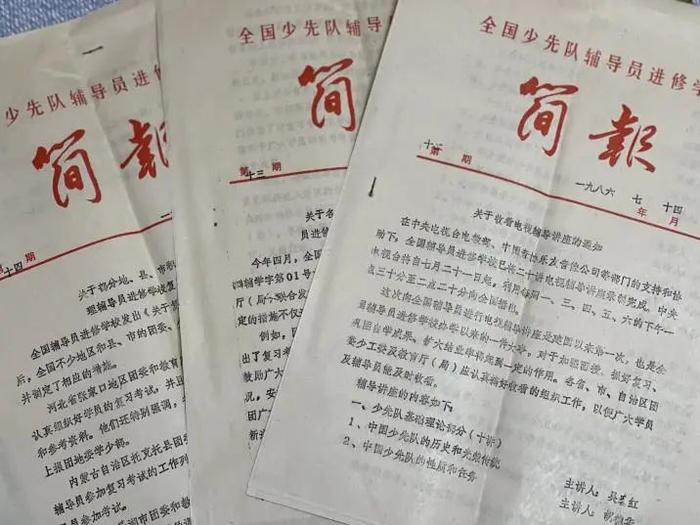 少先队辅导员进修学
简报
十四
期
关于部分地、县、市
理辅导员进修学校复
全国辅导员进修学校发出《关于
后，全国不少地区和县、市的团委
并制定了相应的措施。
河北省张家口地区团委和教育
认真组织好学员的复习考试，并且
和参考资料。他们还特别强调，
上报团地委学少部。
内蒙古自治区托克托县团委
辅导员参加复习考试的工作列
导员参加考试。
全国少先队辅导
简
第十三期
关于各
员进修学校
今年四月，全国
辅学字第01号
厅（局）联合发
定的措施不仅
例如，
出了复习考
全国少先队辅导员进修学
简报
第 期
一九八六年七月十四
关于收看电视辅导讲座的通知
在中央电视台电教部、中国音协乐友音像公司等部门的支持和协
助下，全国辅导员进修学校已将二十讲电视辅导讲座录制完成。中央
电视台将自七月二十一日起，利用每周一、三、四、五、六的下午一
点三十分至二点二十分向全国播出。
这次向全国辅导员进行电视辅导讲座是建国以来第一次，也是全
国辅导员进修学校办学以来的一件大事，对于加强面授、抓好复习、
巩固自学成果、扩大结业率将起到一定的作用。各省、市、自治区团
委少工教及教育厅（局）应认真搞好收看的组织工作，以便广大学员
及辅导员能及时收看。
辅导讲座的内容如下：
一、少先队基础理论部分（十讲）
1、中国少先队的历史和光荣传统
主讲人：吴芸红
2、中国少先队的性质和任务
主讲人：